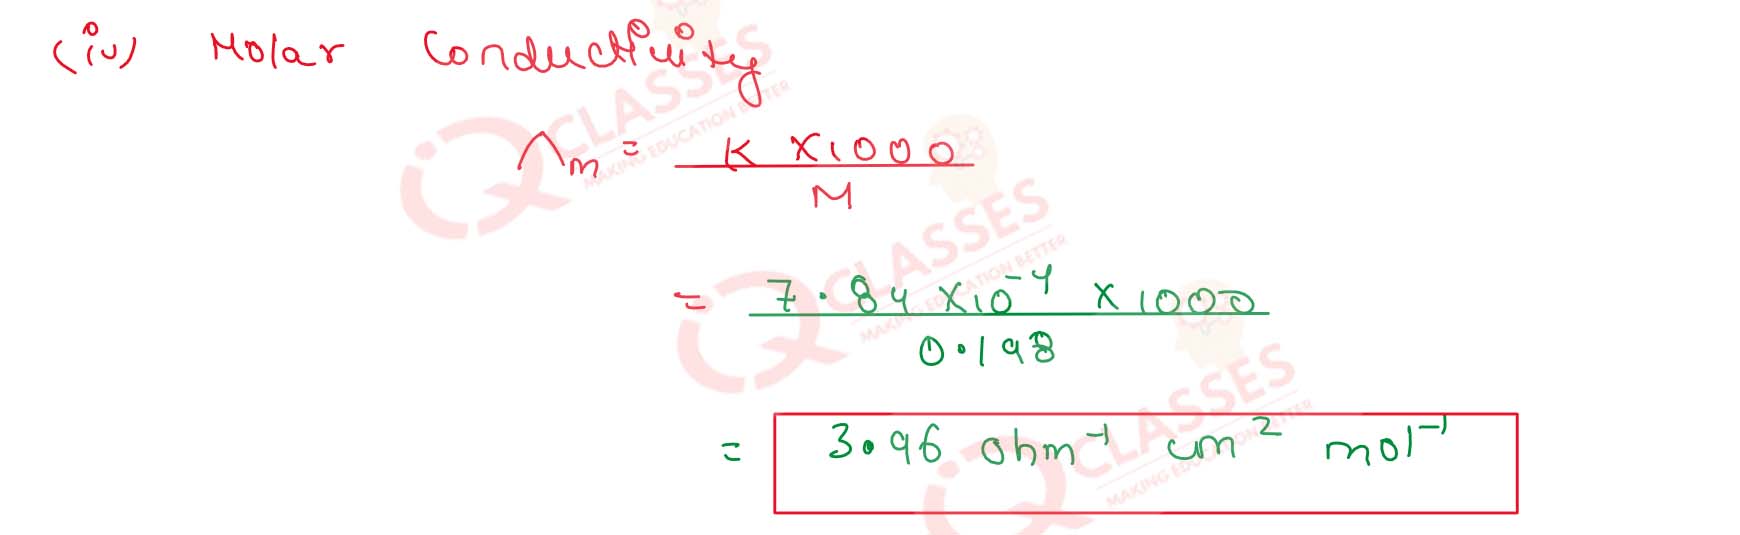 (iv) Molar Conductivity
Λm = K X1000
M
= 7.84 X10⁻⁴ X 1000
0.198
= 3.96 ohm⁻¹ cm² mol⁻¹
iQ CLASSES
MAKING EDUCATION BETTER
iQ CLASSES
MAKING EDUCATION BETTER
iQ CLASSES
MAKING EDUCATION BETTER